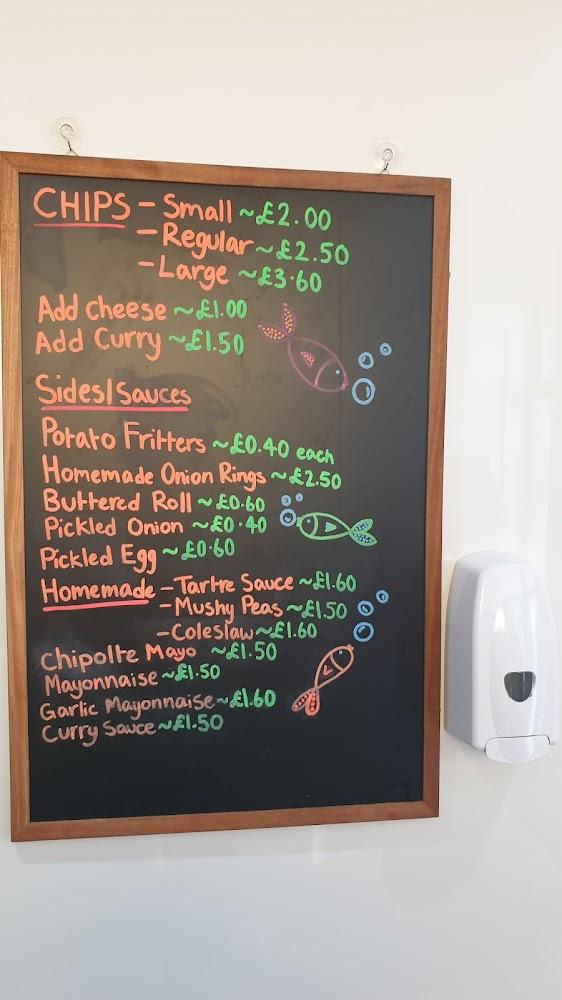 CHIPS - Small ~£2.00
- Regular ~£2.50
- Large ~£3.60
Add cheese ~£1.00
Add Curry ~£1.50
Sides/Sauces
Potato Fritters ~£0.40 each
Homemade Onion Rings ~£2.50
Buttered Roll ~£0.60
Pickled Onion ~£0.40
Pickled Egg ~£0.60
Homemade - Tartre Sauce ~£1.60
- Mushy Peas ~£1.50
- Coleslaw ~£1.60
Chipolte Mayo ~£1.50
Mayonnaise ~£1.50
Garlic Mayonnaise ~£1.60
Curry Sauce ~£1.50